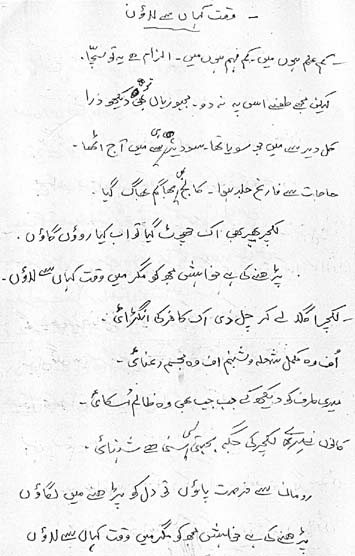 - وقت کہاں سے لاؤں
- کم علم ہوں میں - کم فہم ہوں میں - الزام ہے یہ تو سچا -
لیکن مجھے طعنے اس پہ نہ دو - مجبوریاں بھی تو دیکھو ذرا
کل دیر سے میں جو سویا تھا - سو دیر سے ہی میں آج اٹھا -
حاجات سے فارغ جلد ہوا - کالج کو بھاگم بھاگ گیا -
لکچر پھر بھی اک چھوٹ گیا تو اب کیا روؤں گاؤں -
پڑھنے کی ہے خواہش مجھ کو مگر میں وقت کہاں سے لاؤں -
- لکچر اگلا لے کر چل دی اک کافر کی انگڑائی -
اُف وہ مکمل شعلہ و شبنم اف وہ مجسم رعنائی -
میری طرف کو دیکھ کے جب بھی وہ ظالم مُسکائی -
کانوں نے میرے لکچر کی جگہ بجتی ہوئی سنی ہے شہنائی -
رومان سے فرصت پاؤں تو دل کو پڑھنے میں لگاؤں
پڑھنے کی ہے خواہش مجھ کو مگر میں وقت کہاں سے لاؤں